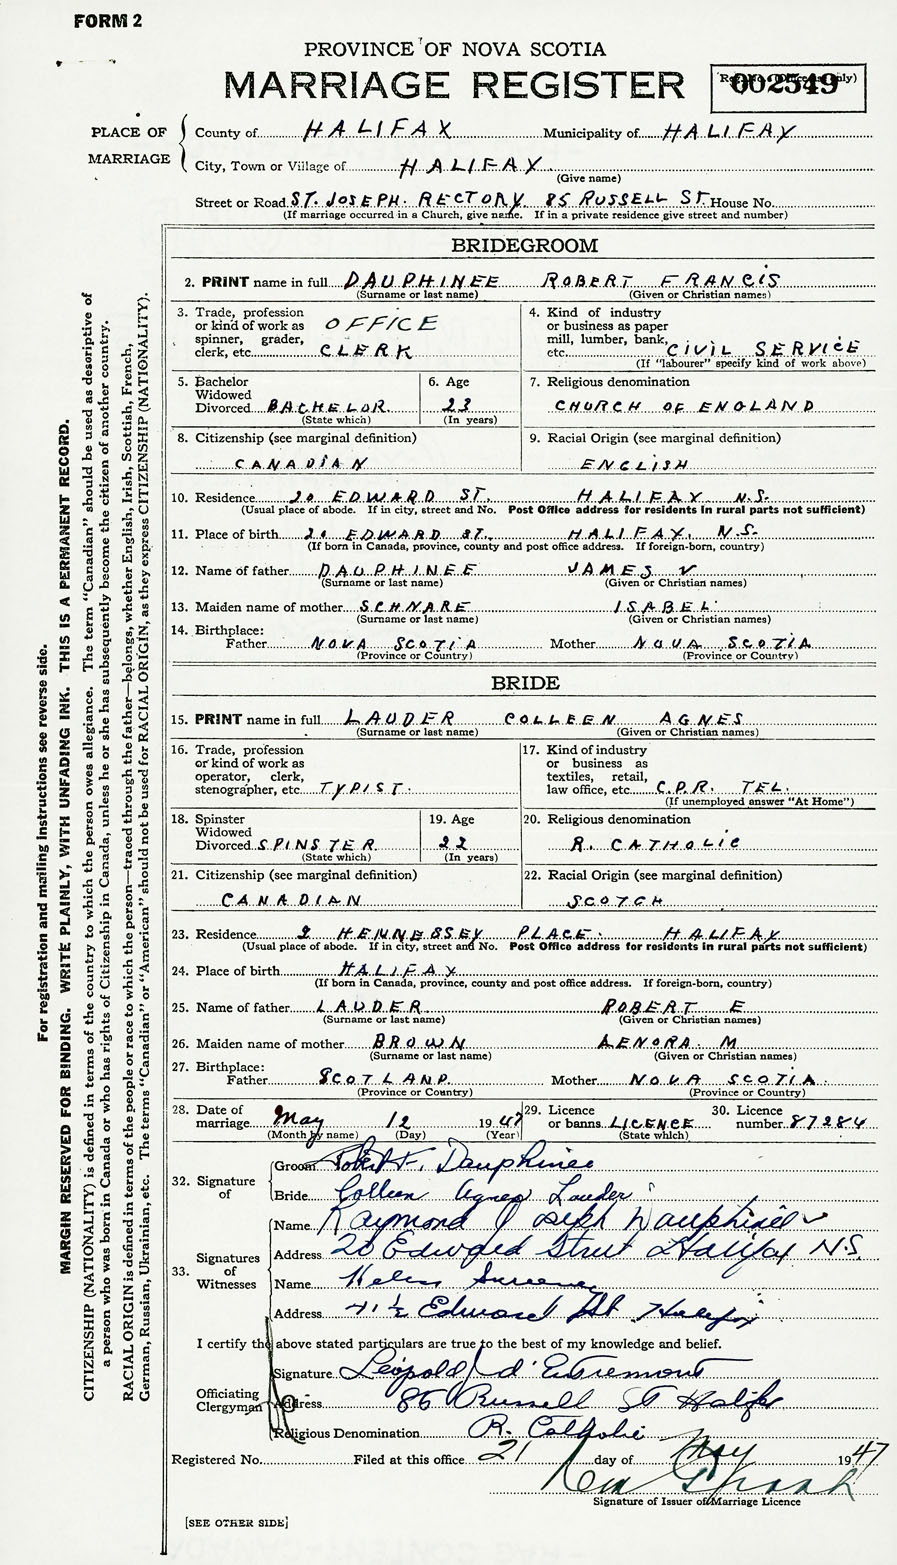 FORM 2
PROVINCE OF NOVA SCOTIA
MARRIAGE REGISTER
Reg. No. (Office use only)
002549
PLACE OF MARRIAGE
County of HALIFAX Municipality of HALIFAX
City, Town or Village of HALIFAX
(Give name)
Street or Road ST. JOSEPH. RECTORY 85 RUSSELL ST. House No.
(If marriage occurred in a Church, give name. If in a private residence give street and number)
BRIDEGROOM
2. PRINT name in full DAUPHINEE ROBERT FRANCIS
(Surname or last name) (Given or Christian names)
3. Trade, profession or kind of work as spinner, grader, clerk, etc. OFFICE CLERK
4. Kind of industry or business as paper mill, lumber, bank, etc. CIVIL SERVICE
(If "labourer" specify kind of work above)
5. Bachelor Widowed Divorced BACHELOR.
(State which)
6. Age 23
(In years)
7. Religious denomination
CHURCH OF ENGLAND
8. Citizenship (see marginal definition)
CANADIAN
9. Racial Origin (see marginal definition)
ENGLISH
10. Residence 20 EDWARD ST. HALIFAX N.S.
(Usual place of abode. If in city, street and No. Post Office address for residents in rural parts not sufficient)
11. Place of birth 20 EDWARD ST. HALIFAX. N.S.
(If born in Canada, province, county and post office address. If foreign-born, country)
12. Name of father DAUPHINEE JAMES V
(Surname or last name) (Given or Christian names)
13. Maiden name of mother SCHNARE ISABEL
(Surname or last name) (Given or Christian names)
14. Birthplace:
Father NOVA SCOTIA Mother NOVA SCOTIA
(Province or Country) (Province or Country)
BRIDE
15. PRINT name in full LAUDER COLLEEN AGNES
(Surname or last name) (Given or Christian names)
16. Trade, profession or kind of work as operator, clerk, stenographer, etc. TYPIST.
17. Kind of industry or business as textiles, retail, law office, etc. C.P.R. TEL.
(If unemployed answer "At Home")
18. Spinster Widowed Divorced SPINSTER
(State which)
19. Age 22
(In years)
20. Religious denomination
R. CATHOLIC
21. Citizenship (see marginal definition)
CANADIAN
22. Racial Origin (see marginal definition)
SCOTCH
23. Residence 2 HENNESSEY PLACE. HALIFAX
(Usual place of abode. If in city, street and No. Post Office address for residents in rural parts not sufficient)
24. Place of birth HALIFAX
(If born in Canada, province, county and post office address. If foreign-born, country)
25. Name of father LAUDER ROBERT E
(Surname or last name) (Given or Christian names)
26. Maiden name of mother BROWN LENORA. M
(Surname or last name) (Given or Christian names)
27. Birthplace:
Father SCOTLAND. Mother NOVA SCOTIA.
(Province or Country) (Province or Country)
28. Date of marriage May 12 1947
(Month by name) (Day) (Year)
29. Licence or banns LICENCE
(State which)
30. Licence number 87284
32. Signature of
Groom Robert F. Dauphinee
Bride Colleen Agnes Lauder
33. Signatures of Witnesses
Name Raymond Joseph Dauphinee
Address 20 Edward Street Halifax N.S.
Name Helen
Address 71 ½ Edward St Halifax
I certify the above stated particulars are true to the best of my knowledge and belief.
Officiating Clergyman
Signature Leopold J d'Entremont
Address 85 Russell St Halifax
Religious Denomination R. Catholic
Registered No. Filed at this office 21 day of May 1947
Signature of Issuer of Marriage Licence
[SEE OTHER SIDE]
For registration and mailing instructions see reverse side.
MARGIN RESERVED FOR BINDING. WRITE PLAINLY, WITH UNFADING INK. THIS IS A PERMANENT RECORD.
CITIZENSHIP (NATIONALITY) is defined in terms of the country to which the person owes allegiance. The term "Canadian" should be used as descriptive of
a person who was born in Canada or who has rights of Citizenship in Canada, unless he or she has subsequently become the citizen of another country.
RACIAL ORIGIN is defined in terms of the people or race to which the person—traced through the father—belongs, whether English, Irish, Scottish, French,
German, Russian, Ukrainian, etc. The terms "Canadian" or "American" should not be used for RACIAL ORIGIN, as they express CITIZENSHIP (NATIONALITY).